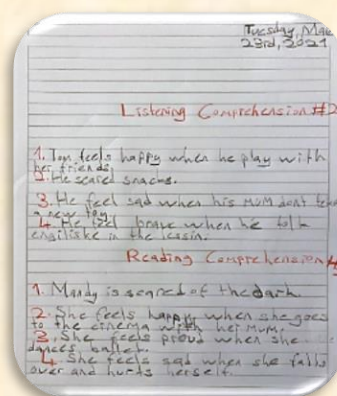 Tuesday, Mar
23rd, 2021
Listening Comprehension #2
1. Tom feels happy when he play with
her friends.
2. He scared snacks.
3. He feel sad when his MUM dont
a new toy
4. He feel brave when he talk
engiliske in the lessin.
Reading Comprehension
1. Mandy is scared of the dark
2. She feels happy when she goes
to the cinema with her mum.
3. She feels proud when she
dances ballet.
4. She feels sad when she falls
over and hurts herself.